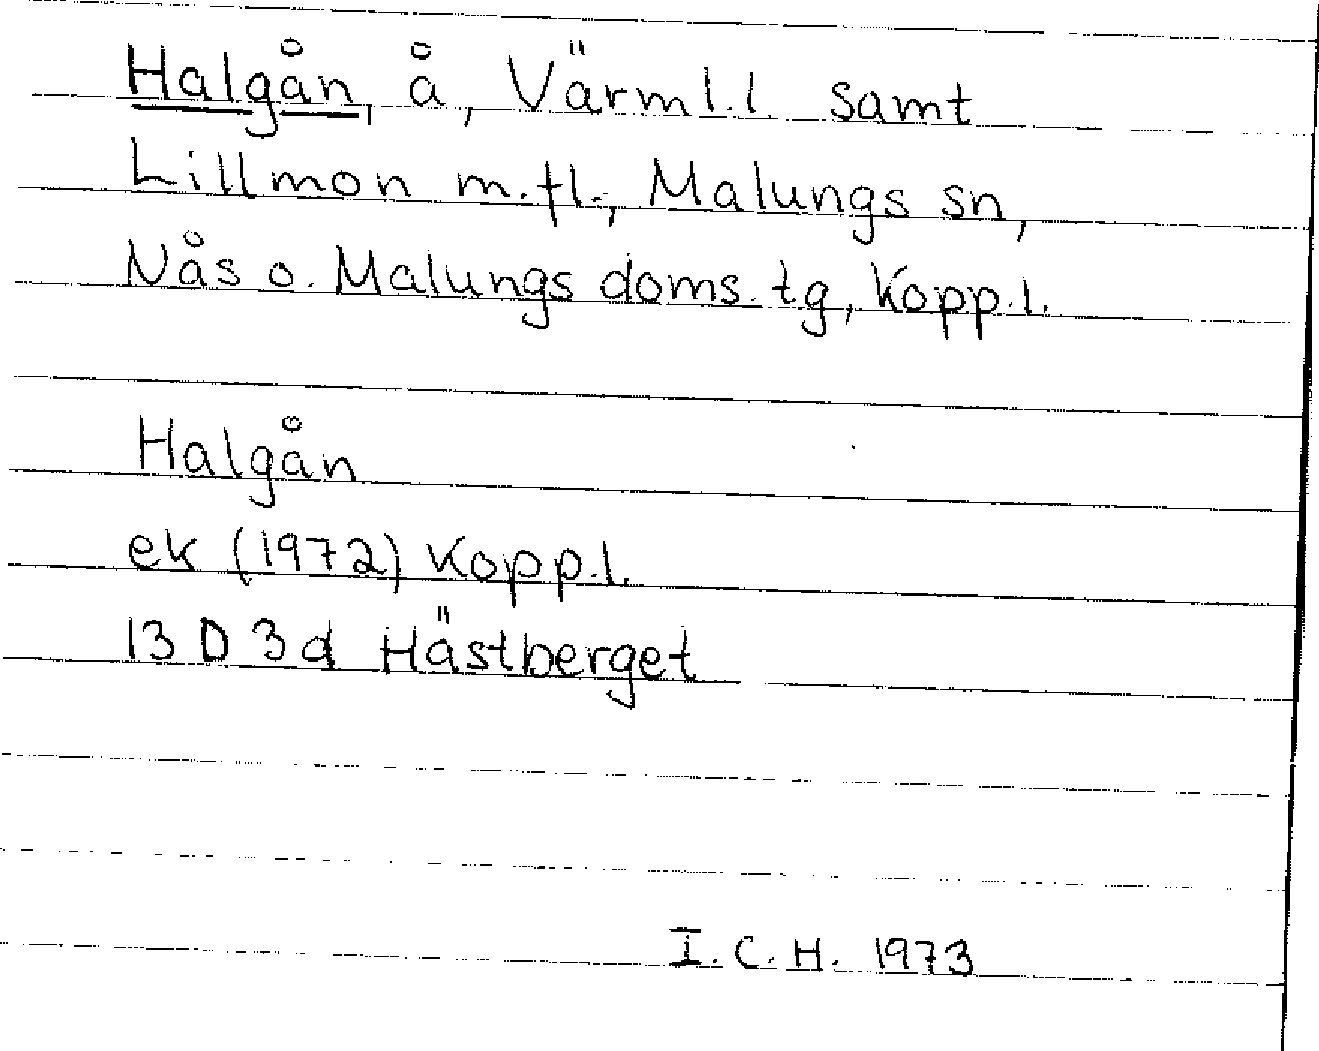 Halgån, å, Värml.l. samt
Lillmon m.fl., Malungs sn,
Nås o. Malungs doms.tg, Kopp.l.
Halgån
ek (1972) Kopp.l.
13 D 3d Hästberget
I.C.H. 1973